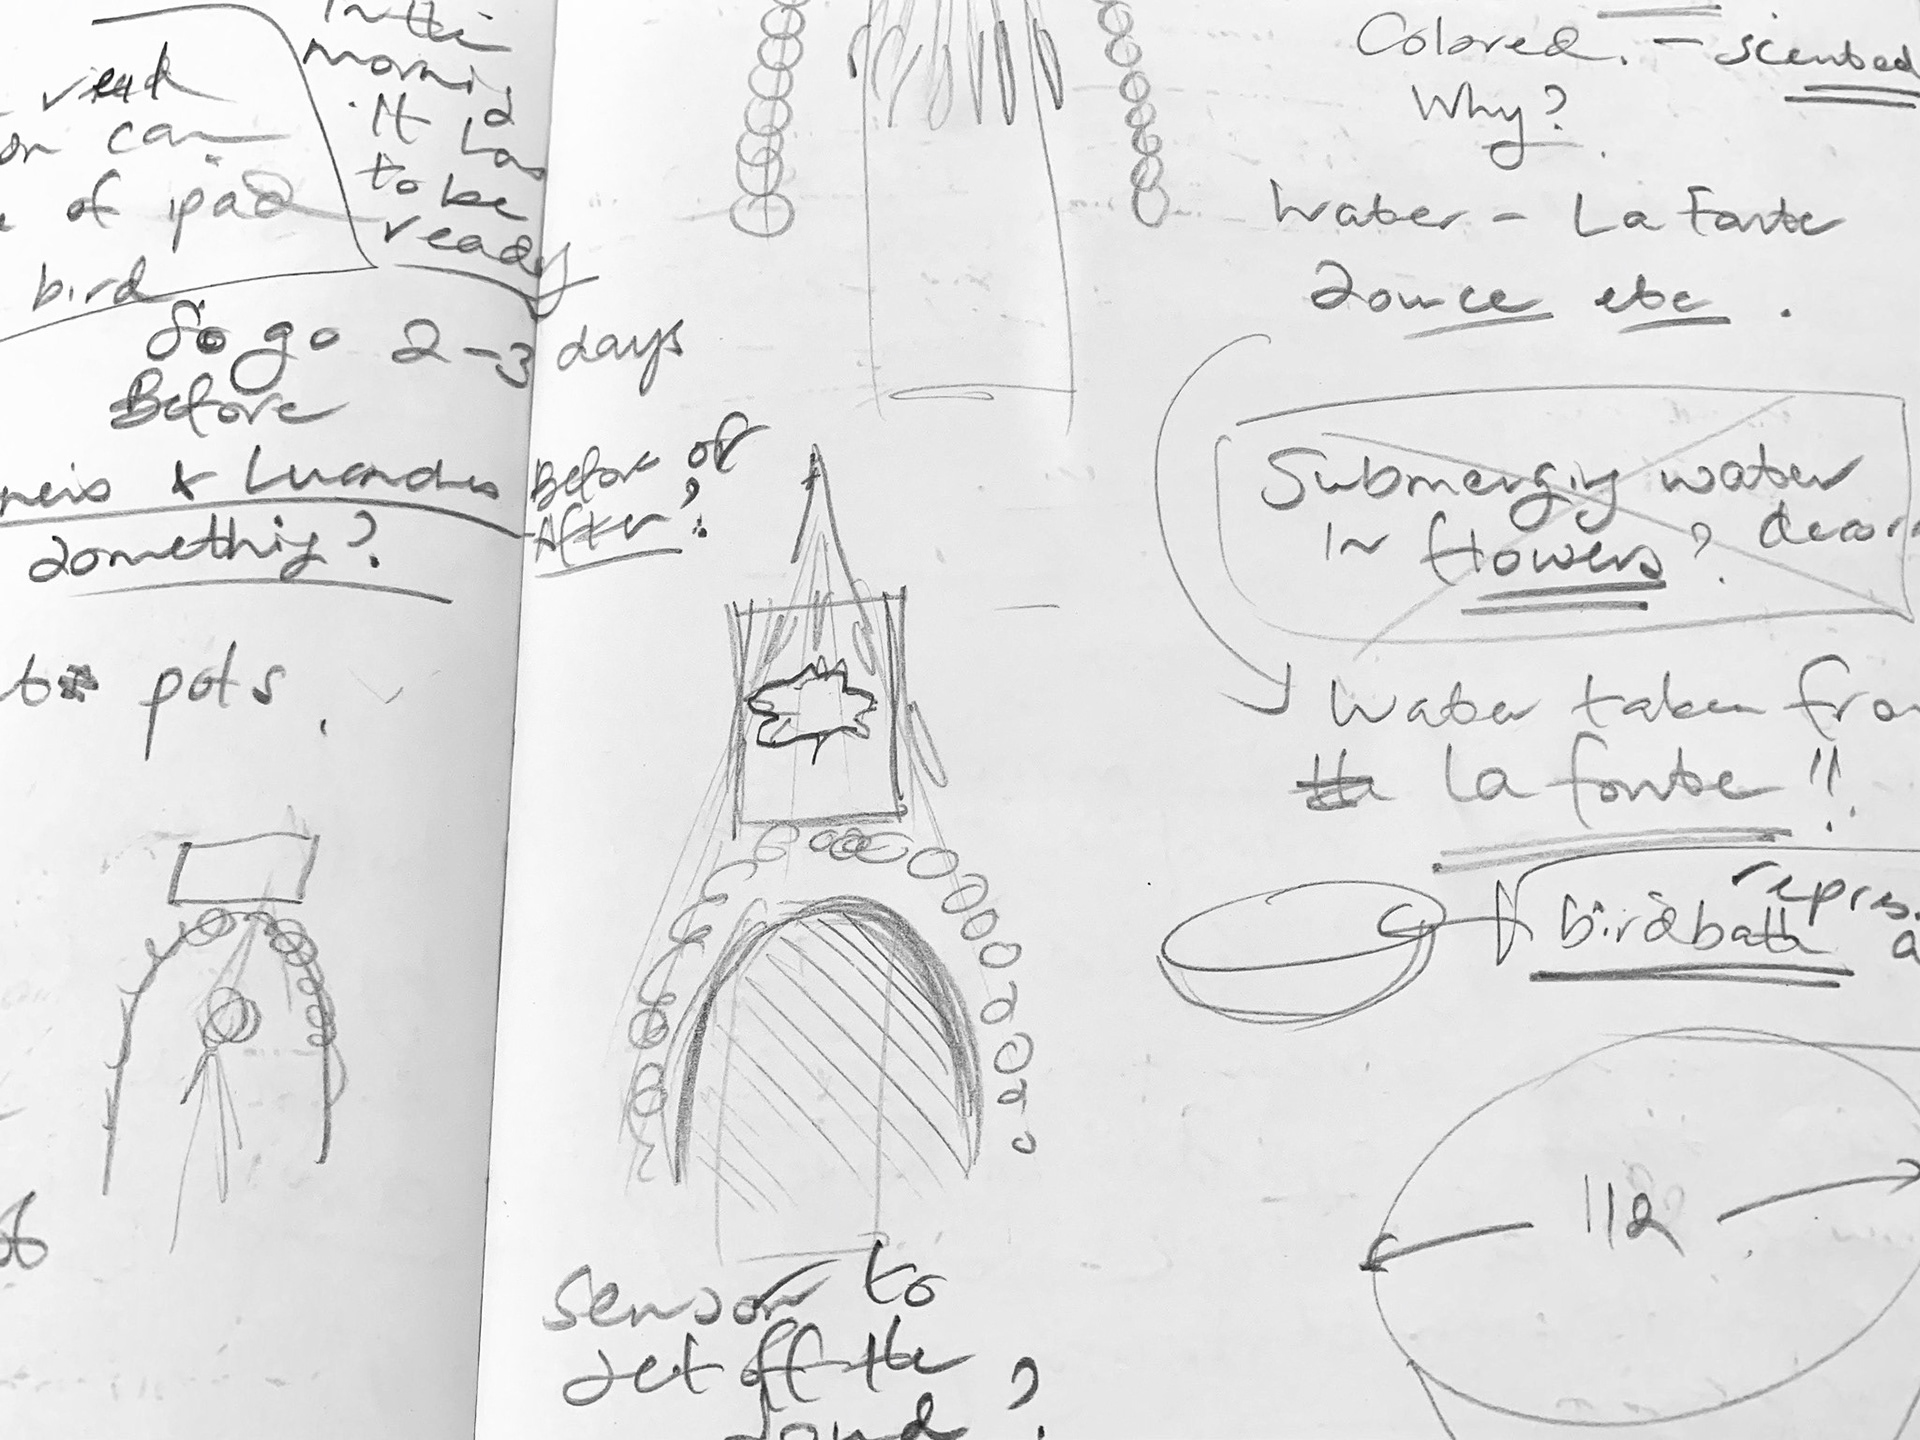 In the
morning
it has
to be
ready
read
on can
of ipad
bird
So go 2-3 days
Before
neis & Luandas
something?
Before or
After?
pots.
sensor to
set off the
sound?
Colored. - scented
Why?
Water - La Fonte
douce etc.
Submerging water
in flowers? decor
Water taken from
La fonte!!
birdbath
repres.
112